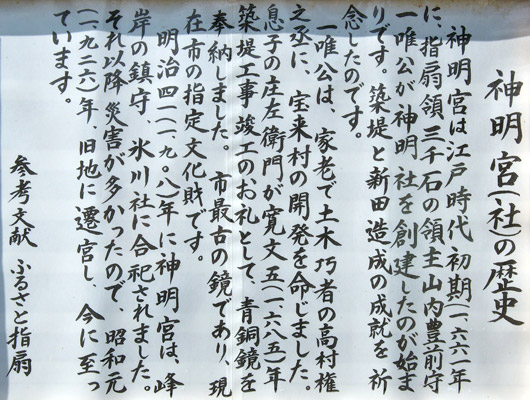 神明宮(社)の歴史
神明宮は江戸時代初期(一、六六一年
に、指扇領三千石の領主山内豊前守
一唯公が神明社を創建したのが始ま
りです。築堤と新田造成の成就を祈
念したのです。
一唯公は、家老で土木巧者の高村権
之丞に、宝来村の開発を命じました。
息子の庄左衛門が寛文五(一六八五)年
築堤工事竣工のお礼として、青銅鏡を
奉納しました。市最古の鏡であり、現
在市の指定文化財です。
明治四一(一、九〇八)年に神明宮は、峰
岸の鎮守、氷川社に合祀されました。
それ以降災害が多かったので、昭和元
(一、九二六)年、旧地に遷宮し、今に至っ
ています。
参考文献 ふるさと指扇